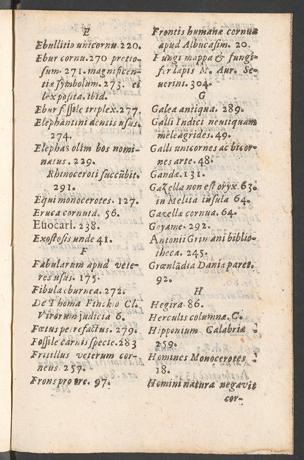 E
Ebullitio unicornu. 220.
Ebur cornu. 270 pretio-
sum. 271. magnificen-
tiæ symbolum. 273. et
lex posita. ibid.
Ebur fossile triplex. 277.
Elephantini dentis usus.
274.
Elephas olim bos nomi-
natus. 229.
Rhinoceroti succubit.
291.
Equi monocerotes. 127.
Eruca cornuta. 56.
Euocarl. 238.
Exostosis unde 41.
F
Fabularum apud vete-
res usus. 175.
Fibula eburnea. 272.
De Thoma Finckio Cl.
Virorum judicia 6.
Fœtus petrefactus. 279.
Fossile carnis specie. 283
Fritillus veterum cor-
neus. 257.
Frons pro 97.
Frontis humanæ cornua
apud Albucasim. 20.
Fungi mappa & fungi-
fer lapis M. Aur. Se-
verini. 304.
G
Galea antiqua. 289.
Galli Indici neutiquam
meleagrides. 49.
Galli unicornes ac bicor-
nes arte. 48.
Ganda. 131.
Gazella non est oryx. 63.
in Melita insula 64.
Gazella cornua. 64.
Goyame. 292.
Antonii Gimani biblio-
theca. 245.
Grœnladia Daniæ paret.
92.
H
Hegira 86.
Herculis columnæ. C.
Hipponium Calabriæ
259.
Homines Monocerotes
18.
Homini natura negavit
cor-